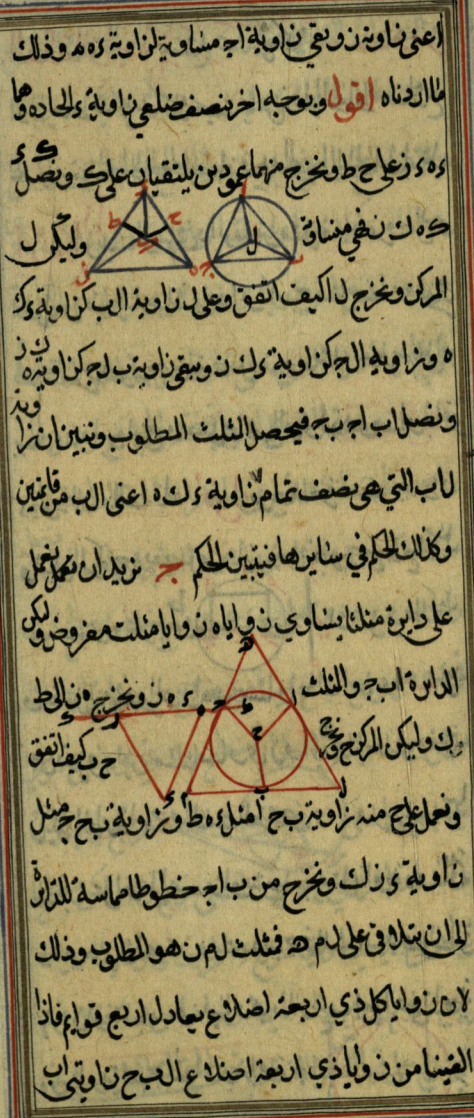 اعنى زاوية ز وبقي زاوية ا ج مساوية لزاوية ء ه وذلك
ما اردناه اقول وبوجه اخر ننصف ضلعي زاوية ء الحادة وهما
ء ه ء ز على ح ط ونخرج منهما عمودين يلتقيان على ك ونصل ك ء
ك ه ك ز فهي متساوية وليكن ل
المركز ونخرج ل ا كيف اتفق وعلى ل زاوية ا ل ب كزاوية ء ك
ه وزاوية ا ل ج كزاوية ء ك ز ويبقى زاوية ب ل ج كزاوية ه ك ز
ونصل ا ب ا ج ب ج فيحصل المثلث المطلوب ونبين ان زاوية
ل ا ب التي هي نصف تمام زاوية ء ك ه اعنى ا ل ب من قايمتين
وكذلك الحكم في سايرها فيتبين الحكم ج نريد ان نعمل
على دايرة مثلثا يساوي زواياه زوايا مثلث مفروض وليكن
الدايرة ا ب ج والمثلث ء ه ز ونخرج ه ز الى ط
ك وليكن المركز ح ونخرج ح ب كيف اتفق
ونعمل على ح منه زاوية ب ح ا مثل ء ه ط وزاوية ب ح ج مثل
زاوية ء ز ك ونخرج من ب ا ج خطوطا مماسة للدايرة
الى ان يتلاقى على ل م ن فمثلث ل م ن هو المطلوب وذلك
لان زوايا كل ذي اربعة اضلاع يعادل اربع قوايم فاذا
القينا من زوايا ذي اربعة اضلاع ا ل ب ح زاويتي ا ب